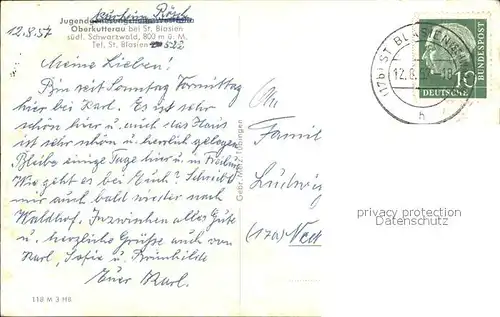 12.8.57
Kurheim Rösch
Jugend
Oberkutterau bei St. Blasien
südl. Schwarzwald, 800 m ü. M.
Tel. St. Blasien 522
Meine Lieben!
Bin seit Sonntag Vormittag
hier bei Karl. Es ist sehr
schön hier u. auch das Haus
ist sehr schön u. herrlich gelegen.
Bleibe einige Tage hier u. in Freiburg
Wie geht es bei Euch? Schreibt
mir auch bald wieder nach
Waldhof. Inzwischen alles Gute
u. herzliche Grüße auch von
Karl, Sofie u. Brünhilde
Euer Karl.
118 M 3 H6
Gebr. Metz, Tübingen
An
Famil
Ludwig
(17a) Neck
(17b) ST. BLASIEN
12.8.57
h
10
DEUTSCHE
BUNDESPOST
privacy protection
VERSANDHANDEL